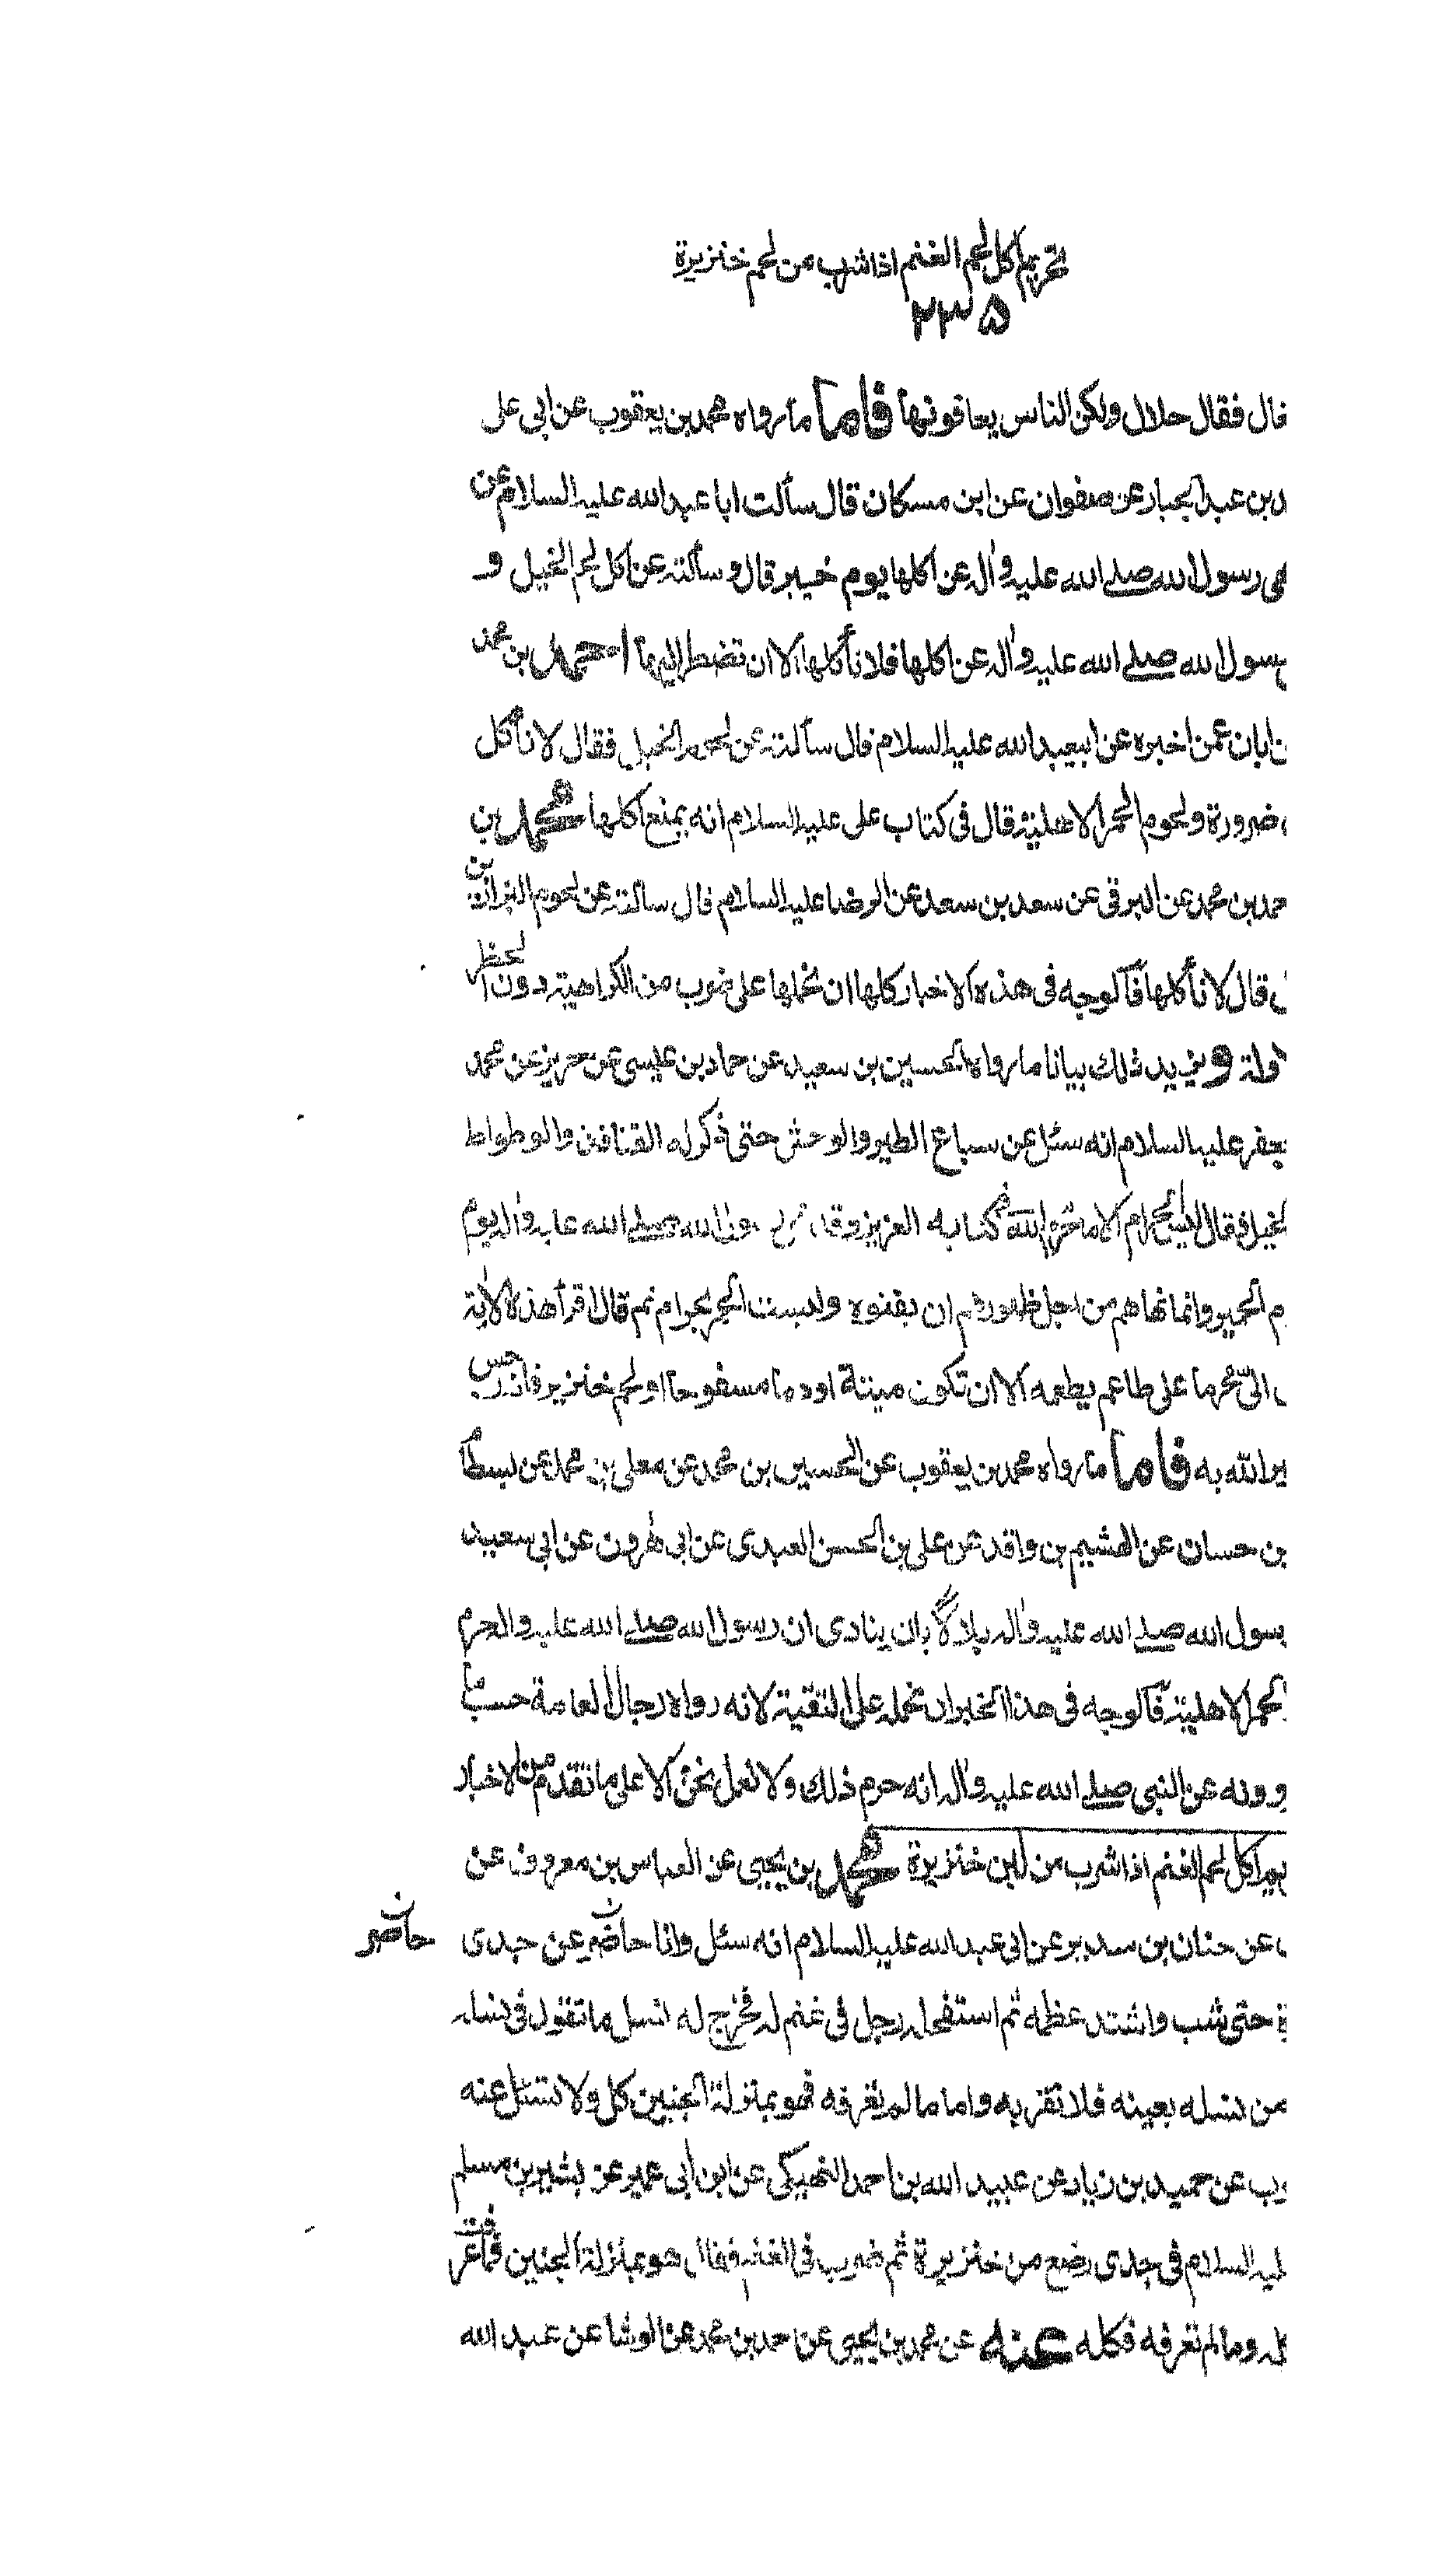 تحريم اكل لحم الغنم اذا شرب من لحم خنزيرة
٢٣٥
فقال حلال ولكن الناس يعافونها فاما ما رواه محمد بن يعقوب عن ابي على
بن عبد الجبار عن صفوان عن ابن مسكان قال سألت ابا عبد الله عليه السلام عن
رسول الله صلى الله عليه واله عن اكلها يوم خيبر قال وسألته عن اكل لحم الخيل و
رسول الله صلى الله عليه واله عن اكلها فلا تأكلها الا ان تضطر اليها احمد بن محمد
ابان عمن اخبره عن ابيعبد الله عليه السلام قال سألته عن لحوم الخيل فقال لا تأكل
ضرورة ولحوم الحمر الاهلية قال في كتاب على عليه السلام انه يمنع اكلها محمد بن
بن محمد عن البرقى عن سعد بن سعد عن الرضا عليه السلام قال سألته عن لحوم البراذين
قال لا تأكلها فالوجه في هذه الاخبار كلها ان نحملها على ضرب من الكراهية دون الحظر
ويزيد ذلك بيانا ما رواه الحسين بن سعيد عن حماد بن عيسى عن حريز عن محمد
عليه السلام انه سئل عن سباع الطير والوحش حتى ذكر له القنافذ والوطواط
فقال ليس الحرام الا ما حرم الله في كتابه العزيز وقد نهى رسول الله صلى الله عليه واله يوم
الحمير وانما نهاهم من اجل ظهورهم ان يفنوه وليست الحمر بحرام ثم قال اقرأ هذه الاية
الىّ محرما على طاعم يطعمه الا ان تكون ميتة او دما مسفوحا او لحم خنزير فانه رجس
الله به فاما ما رواه محمد بن يعقوب عن الحسين بن محمد عن معلى بن محمد عن بسطام
بن حسان عن الهشيم بن واقد عن على بن الحسن العبدى عن ابي هرون عن ابي سعيد
رسول الله صلى الله عليه واله بلالا بان ينادى ان رسول الله صلى الله عليه واله حرم
الحمر الاهلية فالوجه في هذا الخبر ان نحمله على التقية لانه رواه رجال العامة حسب ما
عن النبي صلى الله عليه واله انه حرم ذلك ولا نعمل نحن الا على ما تقدم من الاخبار
اكل لحم الغنم اذا شرب من لبن خنزيرة محمد بن يحيى عن العباس بن معروف عن
عن حنان بن سدير عن ابي عبد الله عليه السلام انه سئل وانا حاضر عن جدى
حاضر
حتى شب واشتد عظمه ثم استفحله رجل في غنم له فخرج له نسل ما تقول في نسله
من نسله بعينه فلا تقربه واما ما لم تعرفه فهو بمنزلة الجنين كل ولا تسئل عنه
عن حميد بن زياد عن عبيد الله بن احمد النهيكى عن ابن ابي عمير عن بشير بن مسلم
عليه السلام في جدى رضع من خنزيرة ثم ضرب في الغنم فقال هو بمنزلة الجنين فما عرفت
وما لم تعرفه فكله عنه عن محمد بن يحيى عن احمد بن محمد عن الوشا عن عبد الله